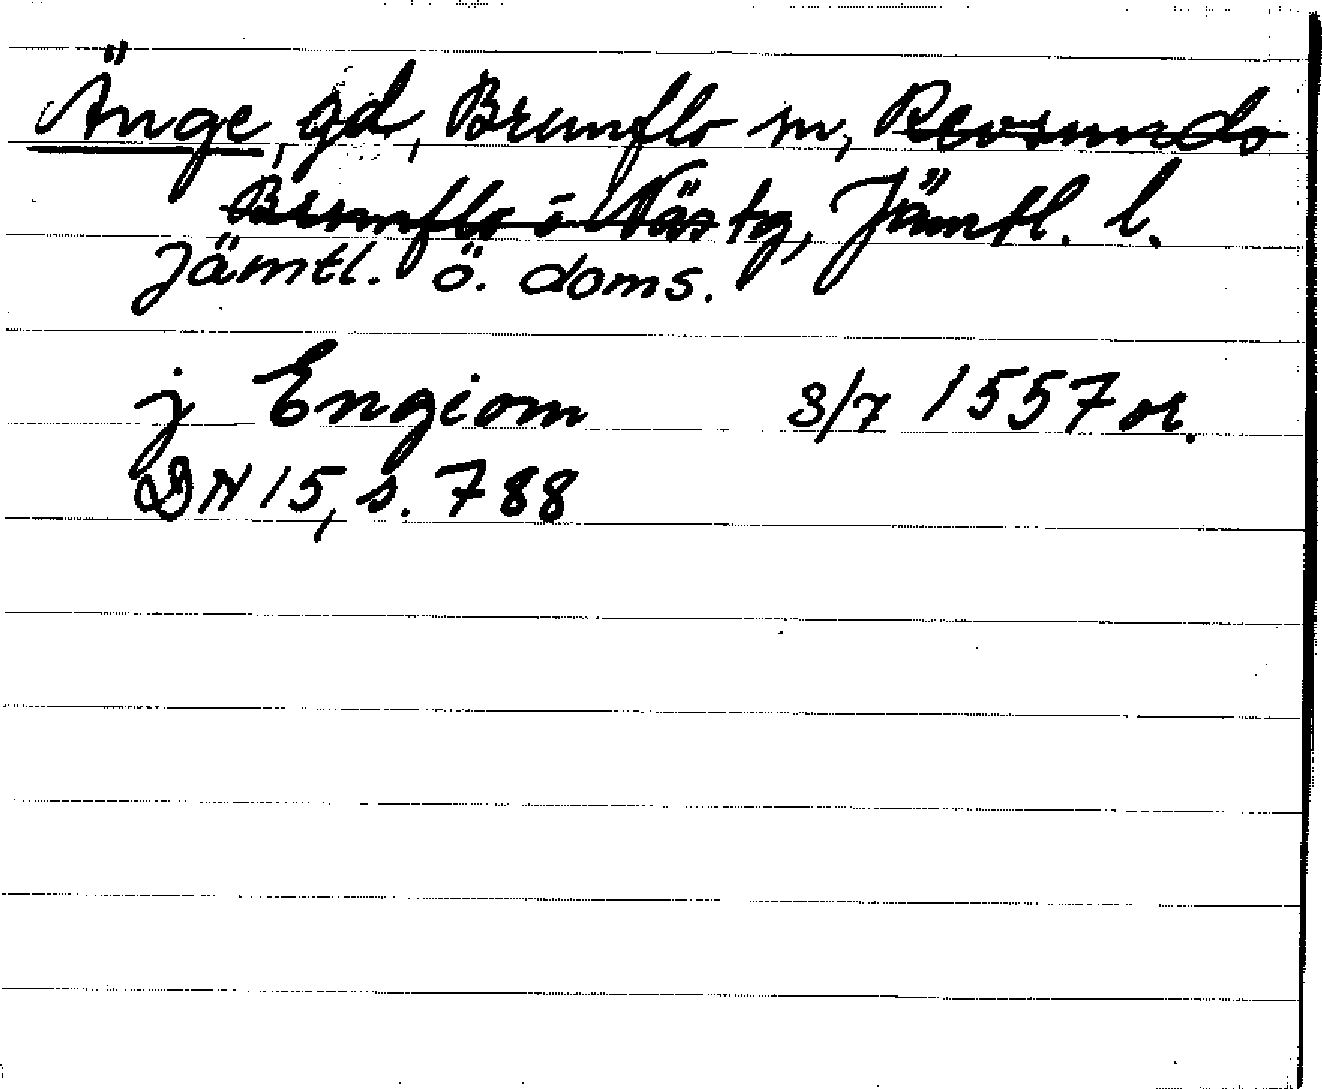 Änge, gd, Brunflo sn, Revsunds
Brunflo o Näs tg, Jämtl. l.
Jämtl. ö. doms.
j Engiom 3/7 1557 or.
DN 15, s. 788